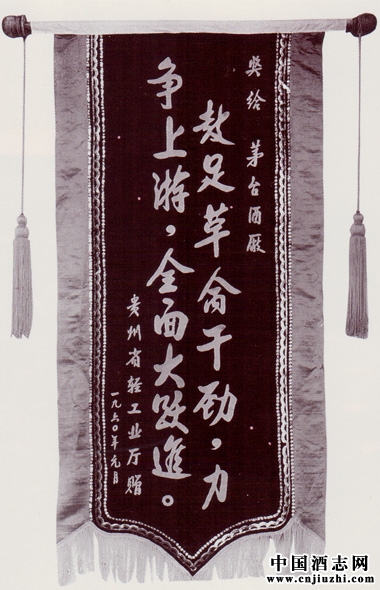 奖给 茅台酒厰
鼓足革命干劲，力
争上游，全面大跃進。
贵州省轻工业厅赠
一九六〇年元月
中国酒志网
www.cnjiuzhi.com